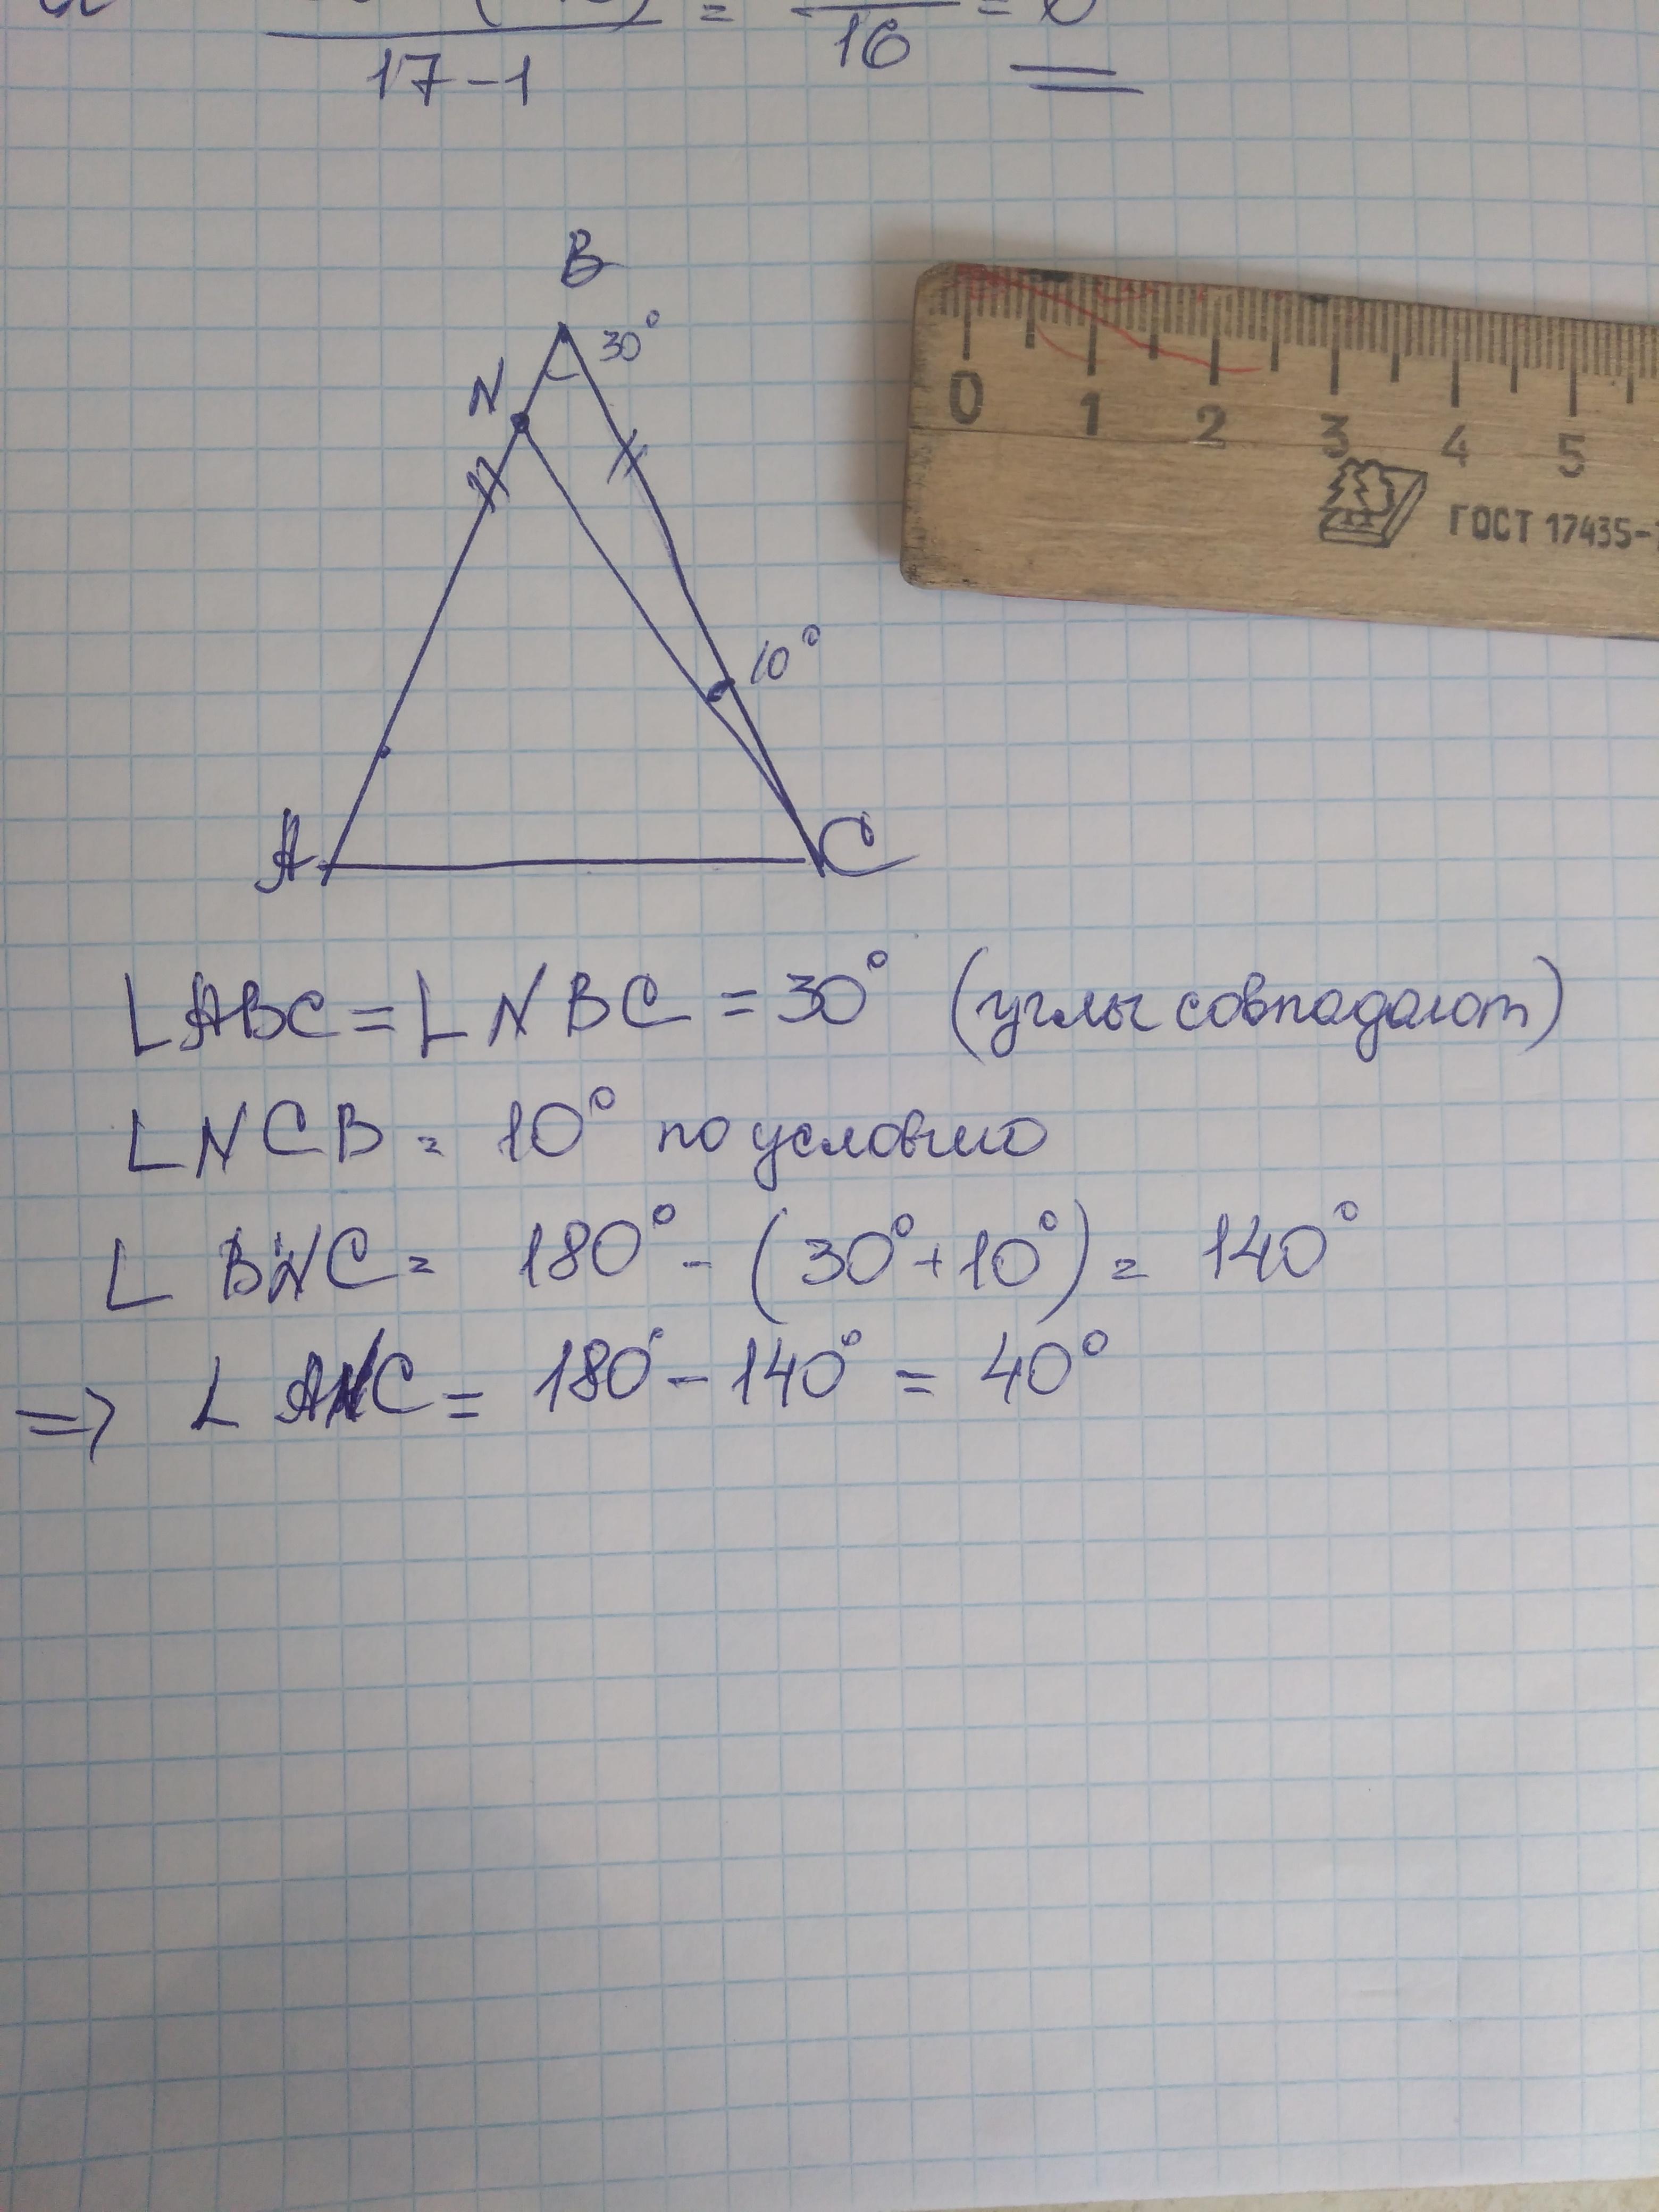 17-1 = 16 =
B
30°
N
0 1 2 3 4 5
ГОСТ 17435-
10°
A C
∟ABC = ∟NBC = 30° (углы совпадают)
∟NCB = 10° по условию
∟BNC = 180° - (30° + 10°) = 140°
=> ∟ANC = 180° - 140° = 40°